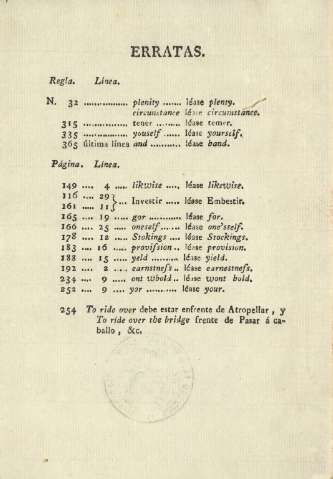 ERRATAS.
Regla. Linea.
N. 32 .................. plenity ....... léase plenty.
circunstance léase circumstance.
315 .................. tener ......... léase temer.
335 .................. youself ...... léase yourself.
365 última linea and .......... léase band.
Página. Linea.
149 .... 4 ..... likwise ...., léase likewise.
116 .... 29 } ... Investir ..... léase Embestir.
161 ..... 11
165 .... 19 ..... gor ........... léase for.
166 .... 25 ..... oneself ...... léase one'sself.
178 .... 12 ..... Stokings .... léase Stockings.
183 .... 16 ..... provifion .. léase provision.
188 .... 15 ..... yeld .......... léase yield.
192 .... 2 .... earnstnefs .. léase earnestnefs.
234 .... 9 ..... ont wbold .. léase wont bold.
252 .... 9 .... yor ......... léase your.
254 To ride over debe estar enfrente de Atropellar, y
To ride over the bridge frente de Pasar á ca-
ballo, &c.